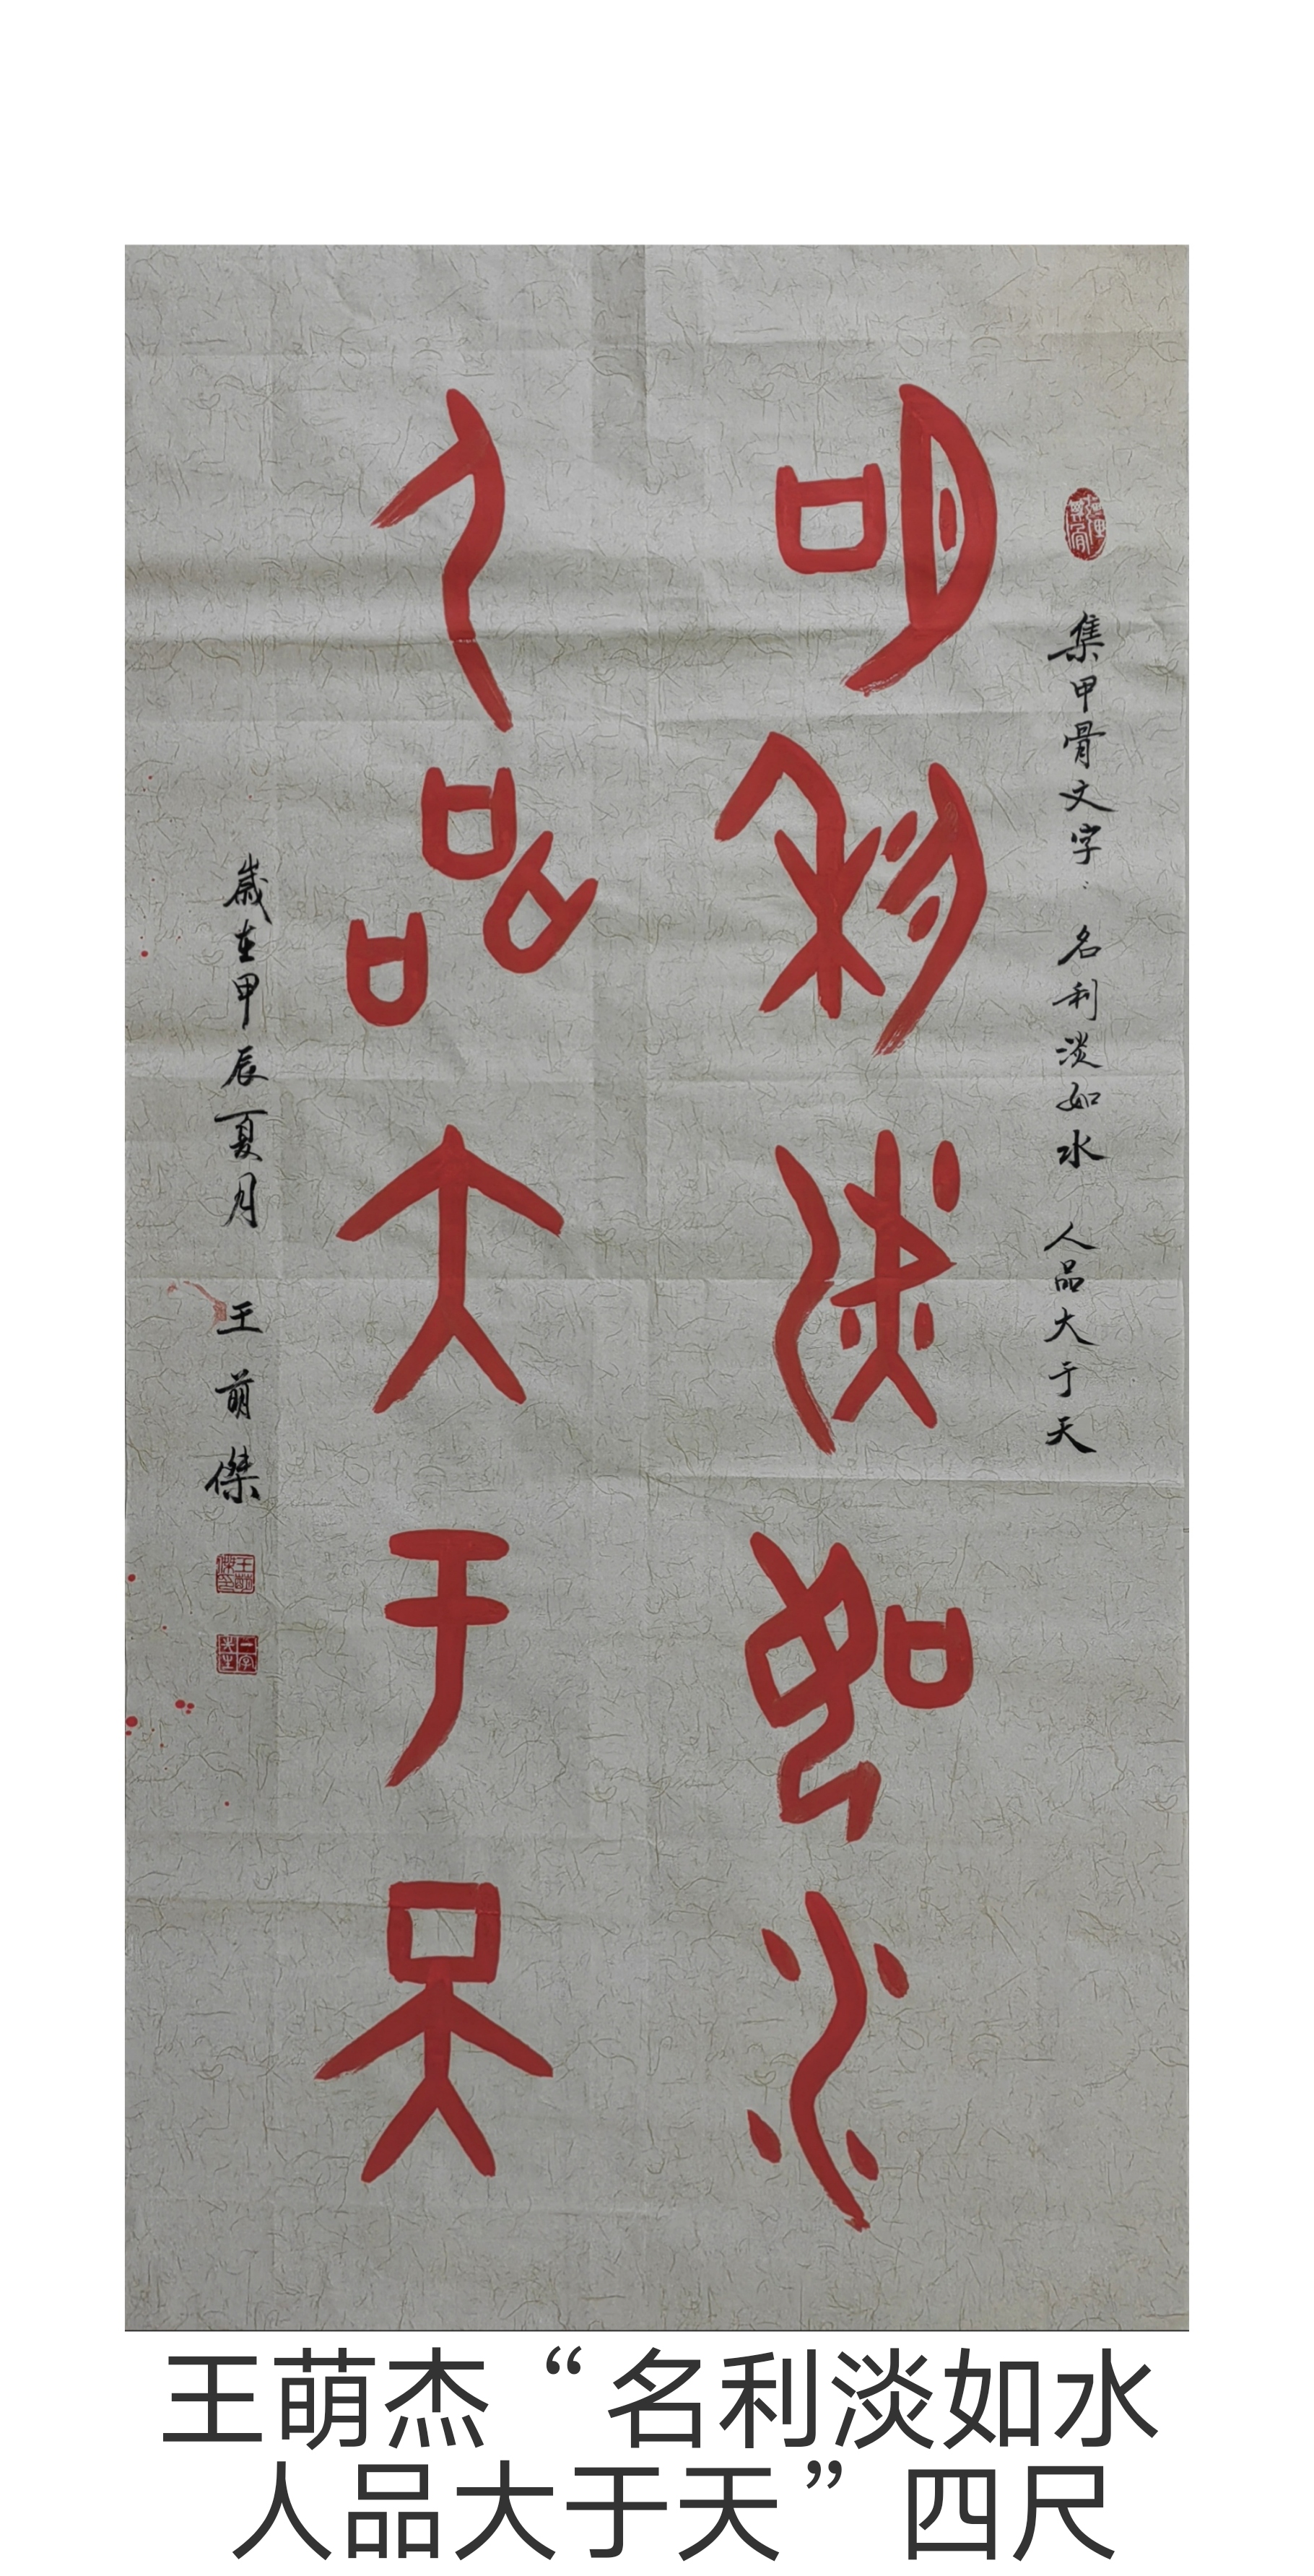 集甲骨文字：名利淡如水 人品大于天
名利淡如水
人品大于天
歲在甲辰夏月 王萌傑
王萌傑印
王萌杰“名利淡如水
人品大于天”四尺